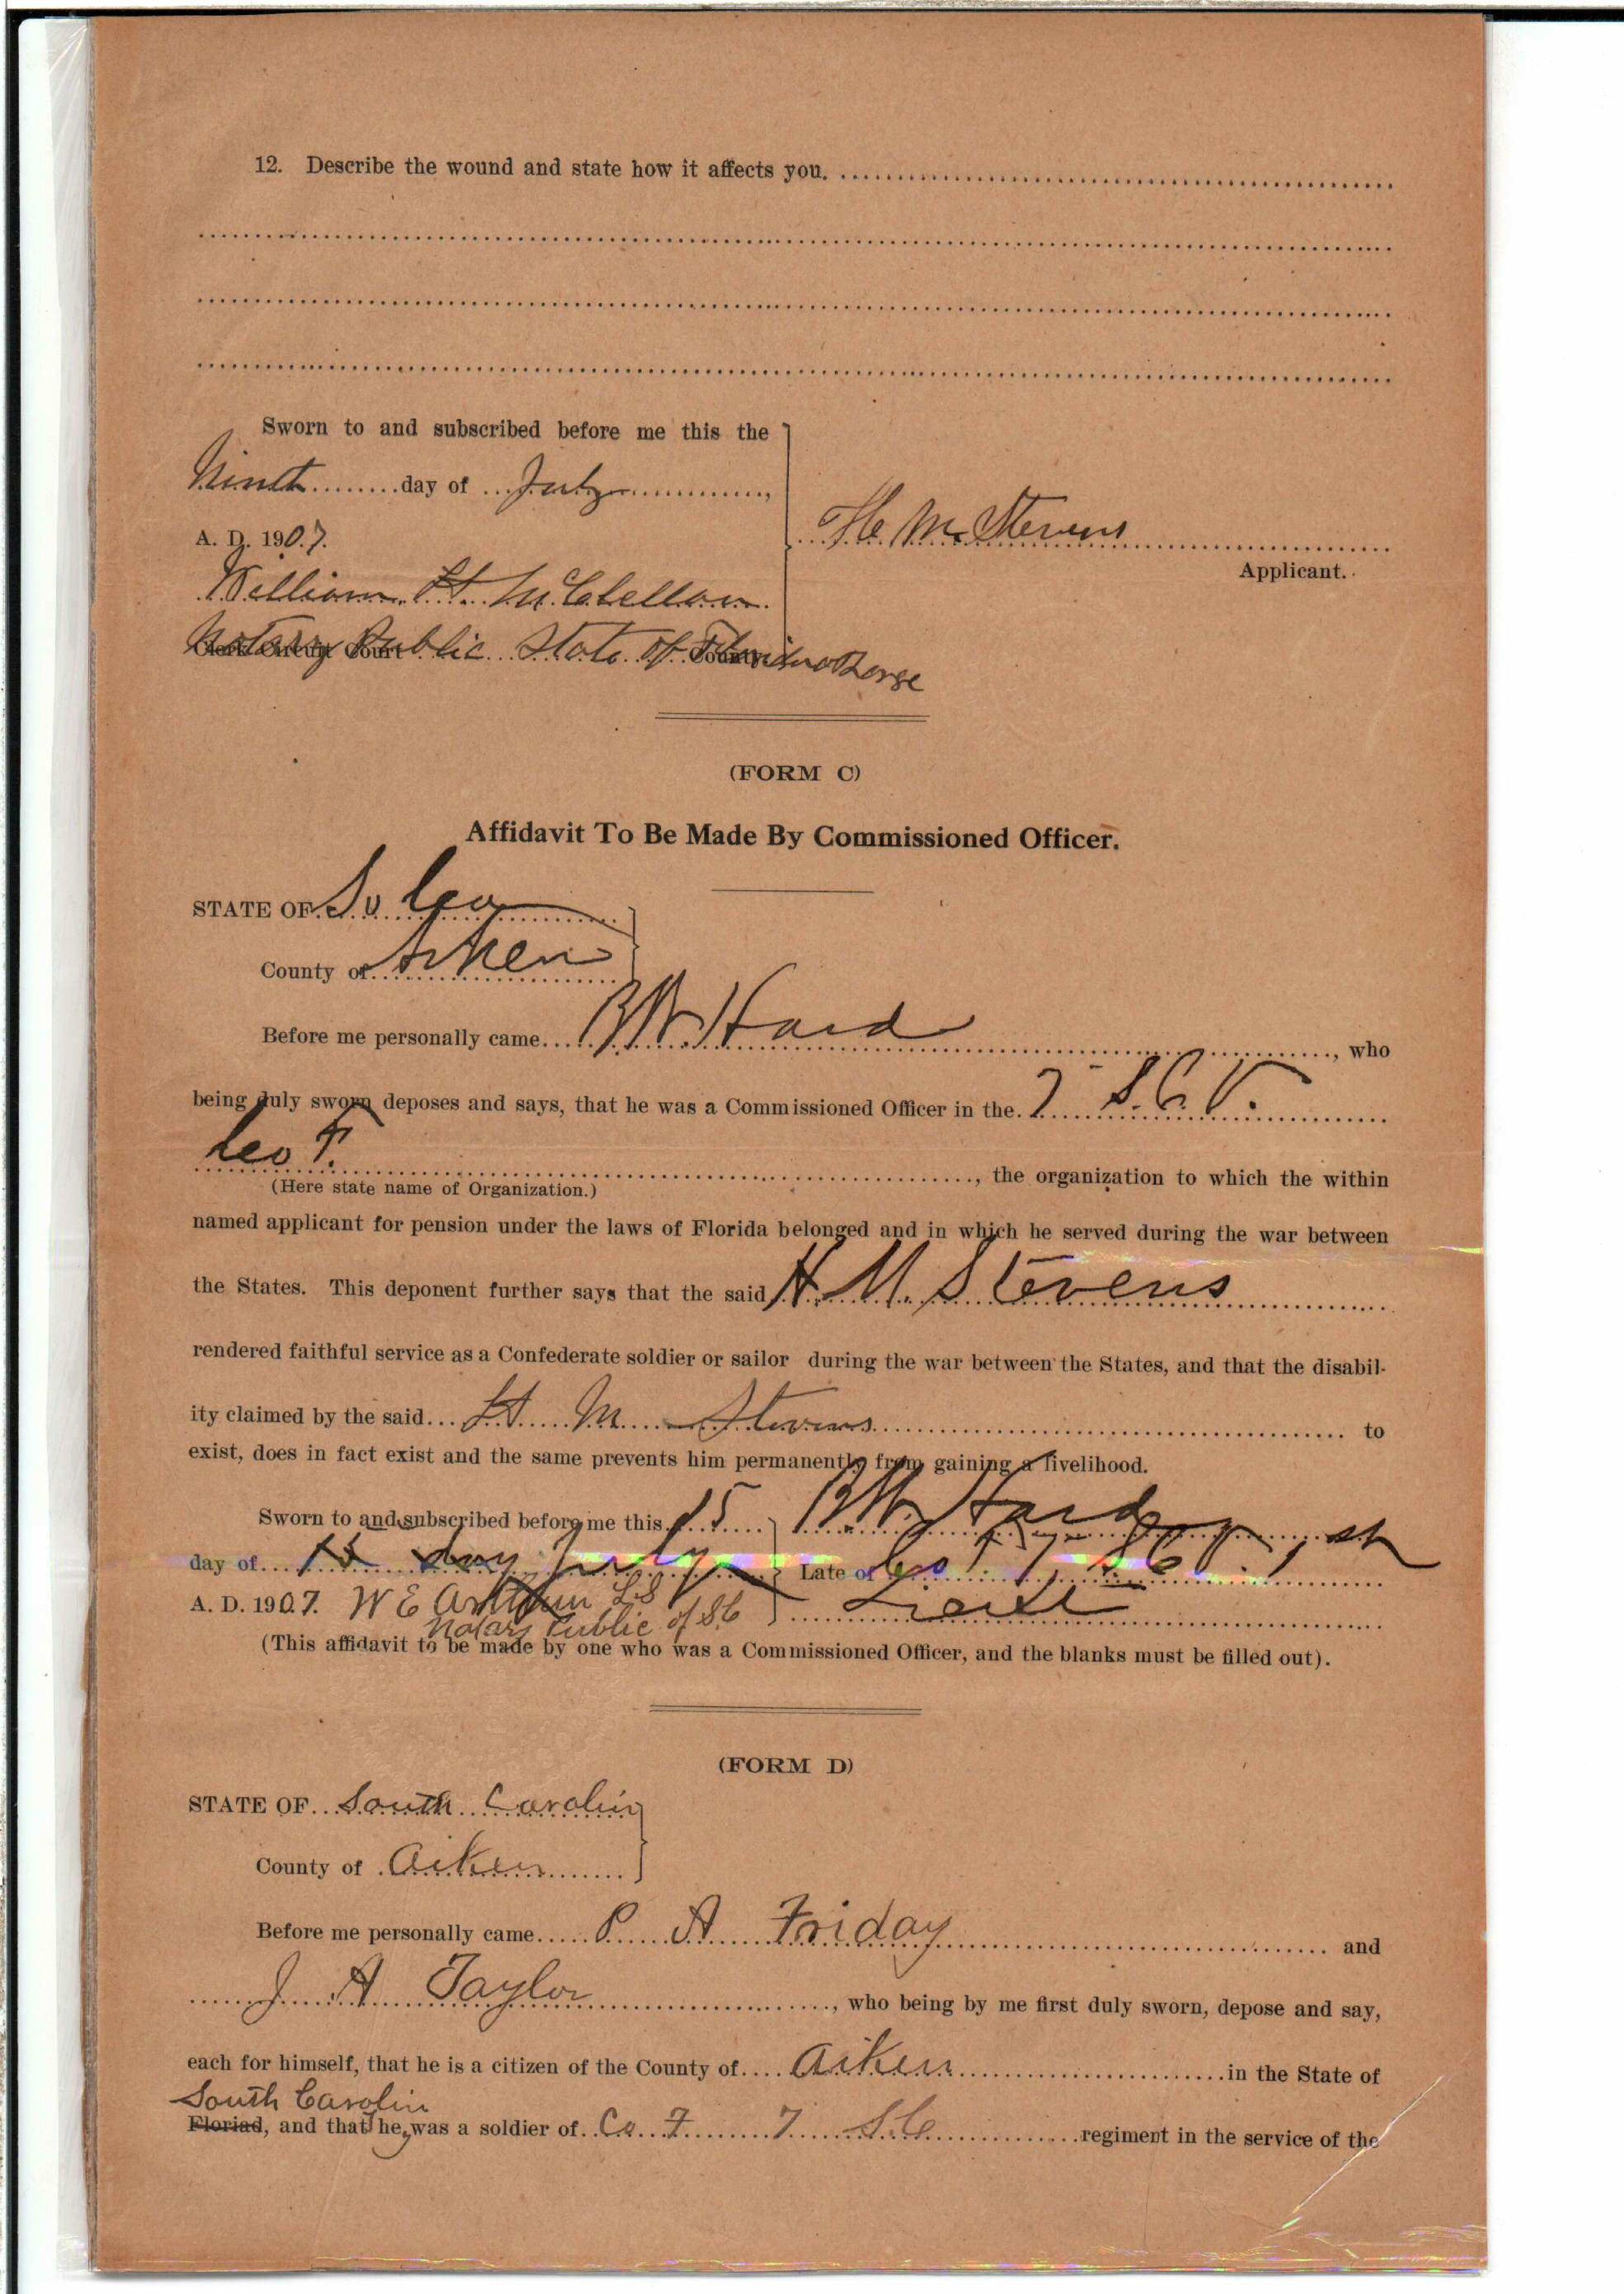 12. Describe the wound and state how it affects you.
Sworn to and subscribed before me this the
Ninth day of July,
A. D. 1907.
H. M. Stevens
Applicant.
William H. McClellan
Notary Public State of Florida at Large
Clerk Circuit Court County
(FORM C)
Affidavit To Be Made By Commissioned Officer.
STATE OF So Ca
County of Aiken
Before me personally came B W Hard, who
being duly sworn deposes and says, that he was a Commissioned Officer in the 7 S. C. V.
Co F., the organization to which the within
(Here state name of Organization.)
named applicant for pension under the laws of Florida belonged and in which he served during the war between
the States. This deponent further says that the said H. M. Stevens
rendered faithful service as a Confederate soldier or sailor during the war between the States, and that the disabil-
ity claimed by the said H. M. Stevens to
exist, does in fact exist and the same prevents him permanently from gaining a livelihood.
Sworn to and subscribed before me this 15 B W Hard
day of 15 day July Late of Co F 7 S C V, 1st
A. D. 1907. W E LS Lieut
Notary Public of S.C
(This affidavit to be made by one who was a Commissioned Officer, and the blanks must be filled out).
(FORM D)
STATE OF South Carolin
County of Aiken
Before me personally came P. A. Friday and
J. A. Taylor, who being by me first duly sworn, depose and say,
each for himself, that he is a citizen of the County of Aiken in the State of
South Carolin
Floriad, and that he was a soldier of Co F 7 S.C regiment in the service of the